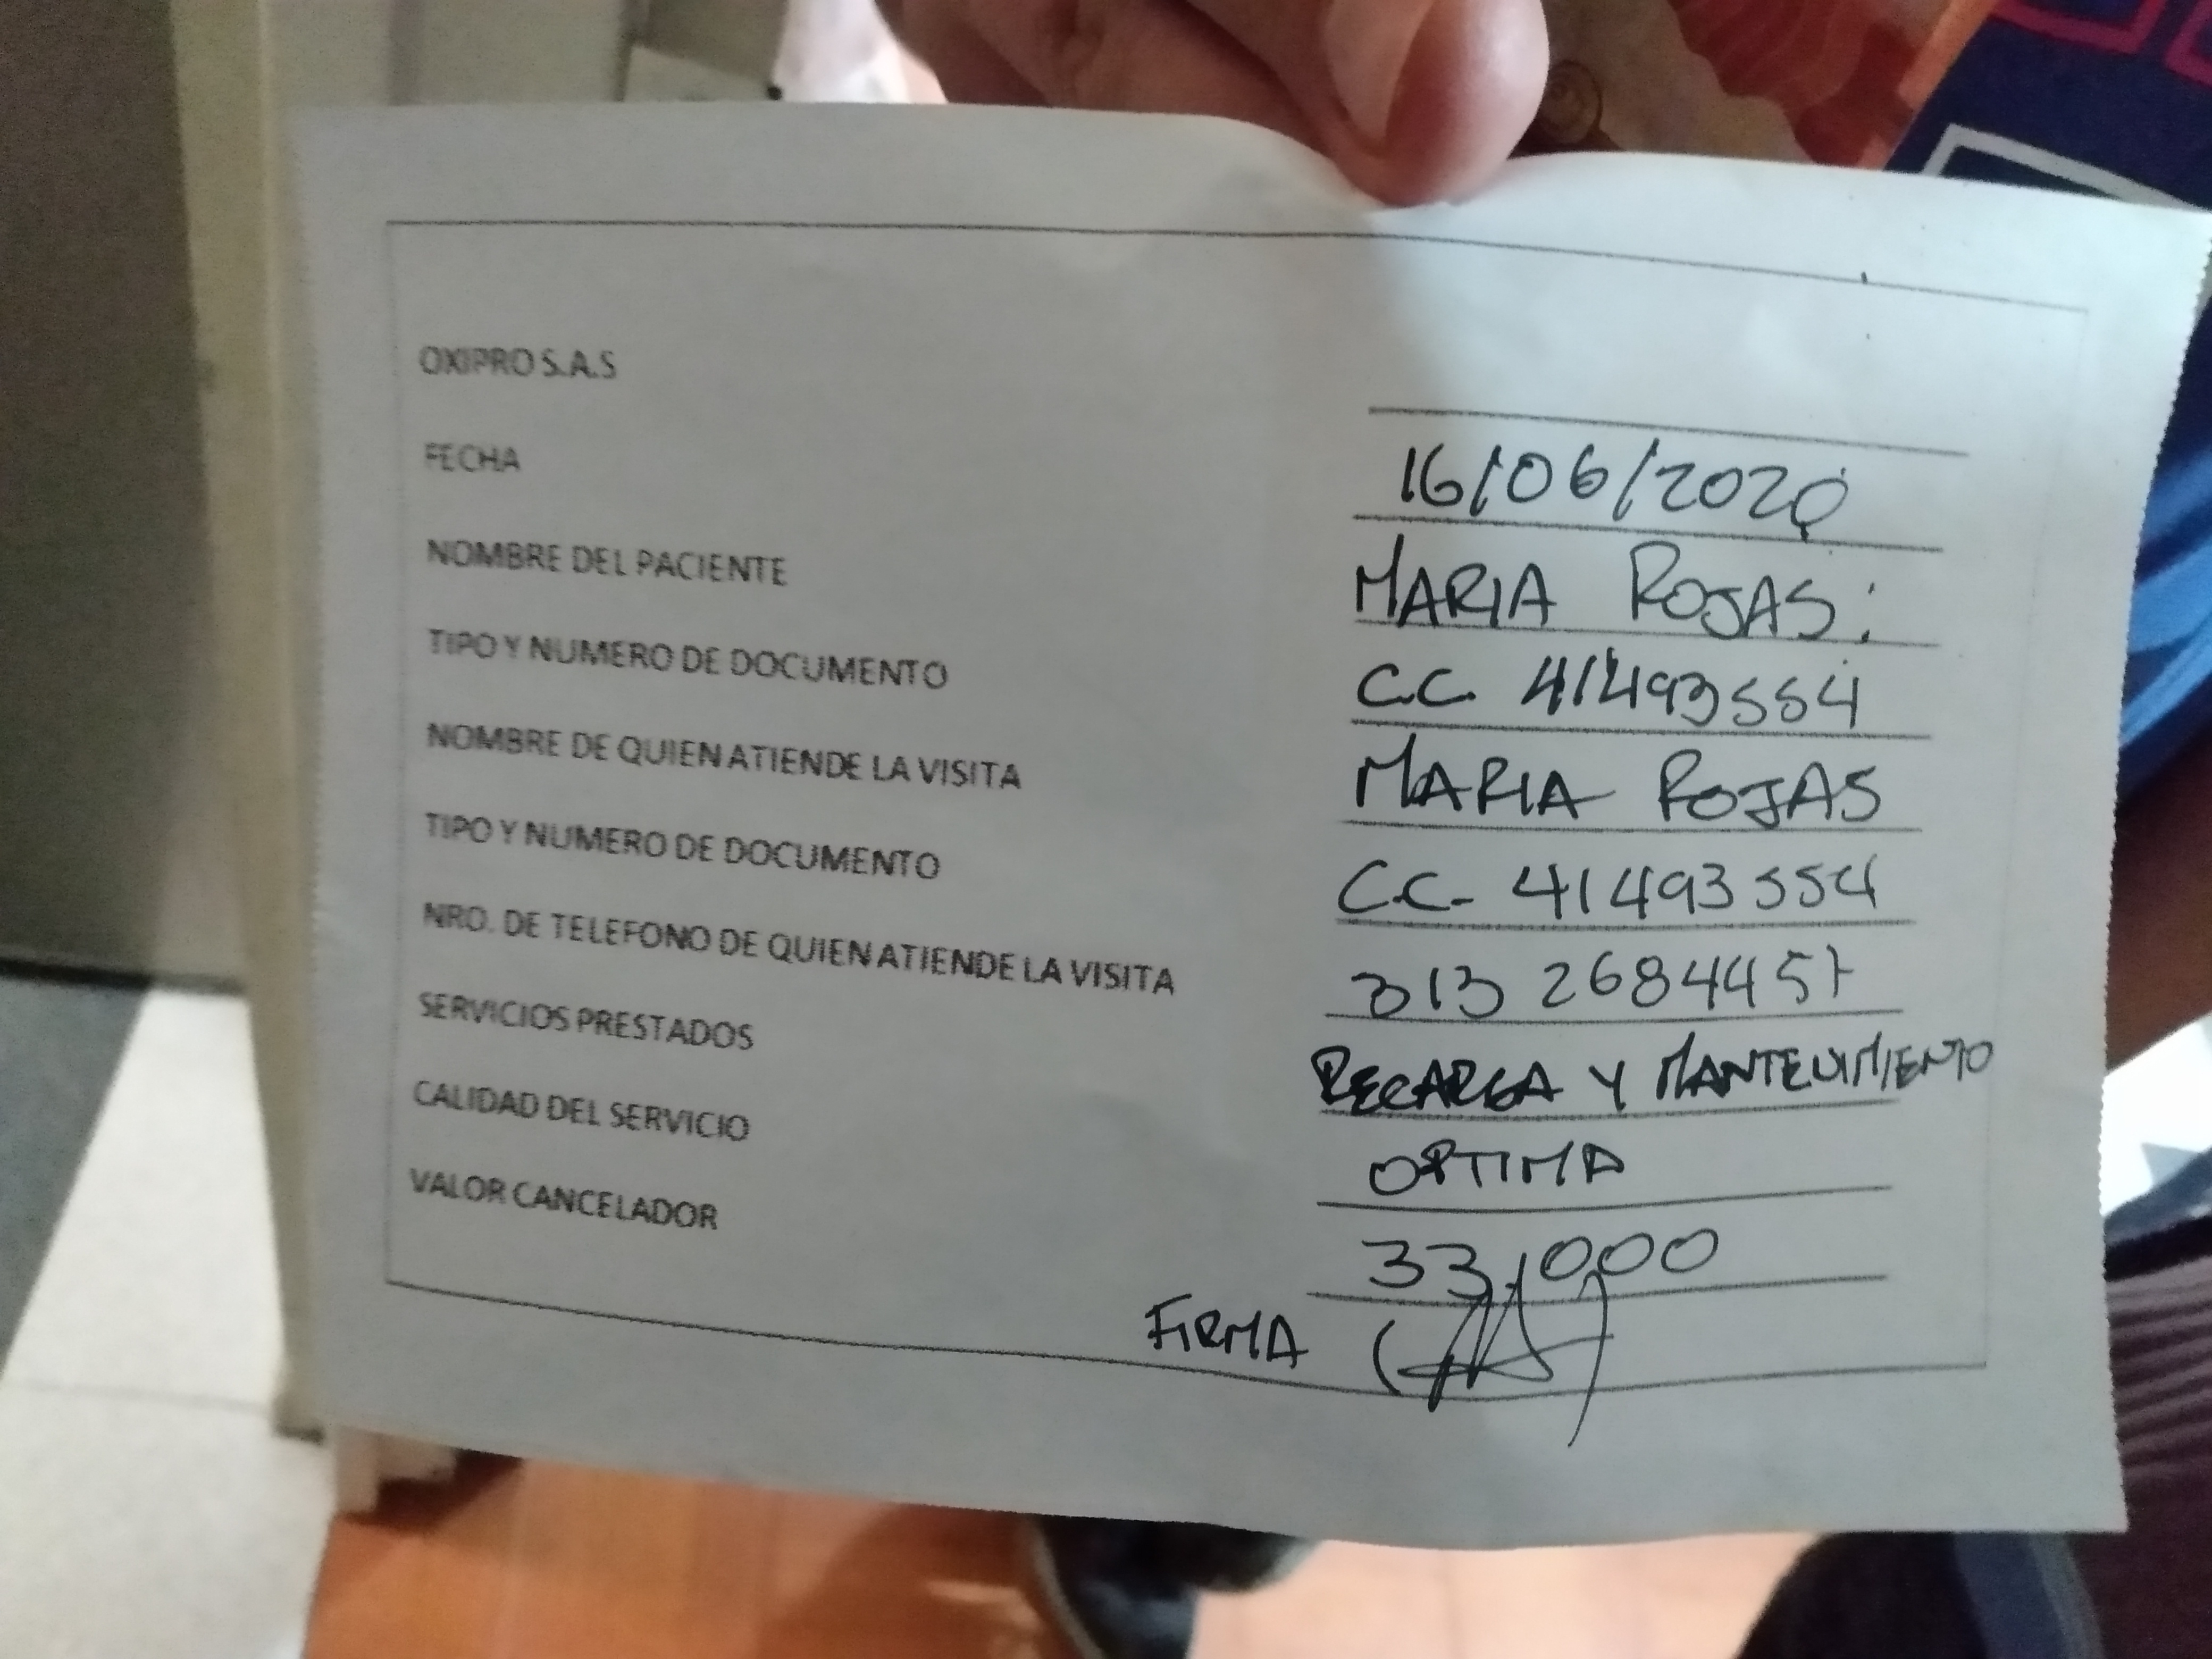 OXIPRO S.A.S
FECHA 16/06/2020
NOMBRE DEL PACIENTE MARIA ROJAS:
TIPO Y NUMERO DE DOCUMENTO C.C. 41493554
NOMBRE DE QUIEN ATIENDE LA VISITA MARIA ROJAS
TIPO Y NUMERO DE DOCUMENTO C.C- 41493554
NRO. DE TELEFONO DE QUIEN ATIENDE LA VISITA 313 2684457
SERVICIOS PRESTADOS RECARGA Y MANTENIMIENTO
CALIDAD DEL SERVICIO OPTIMA
VALOR CANCELADOR 33,000
FIRMA